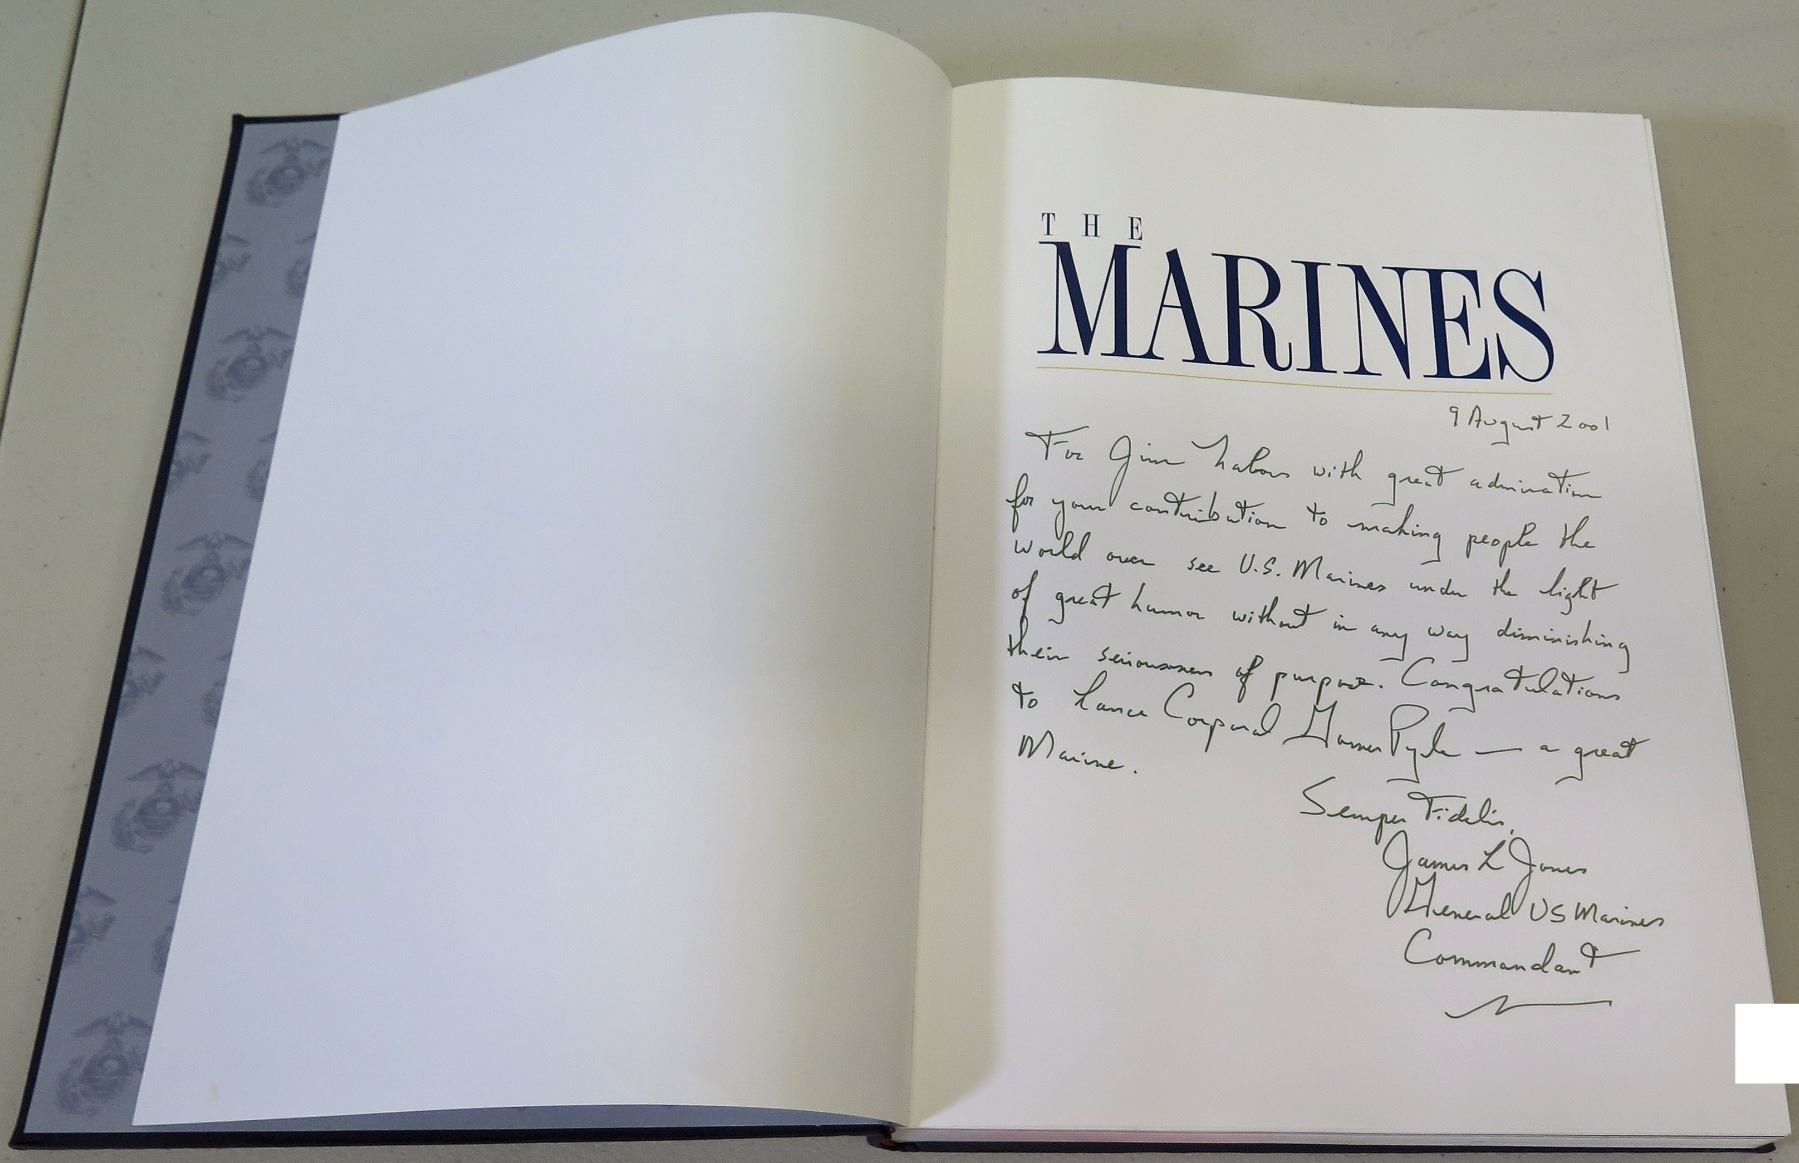 THE
MARINES
9 August 2001
For Jim Nabors with great admiration
for your contribution to making people the
world over see U.S. Marines under the light
of great humor without in any way diminishing
their seriousness of purpose. Congratulations
to Lance Corporal Gomer Pyle — a great
Marine.
Semper Fidelis,
James L Jones
General US Marines
Commandant